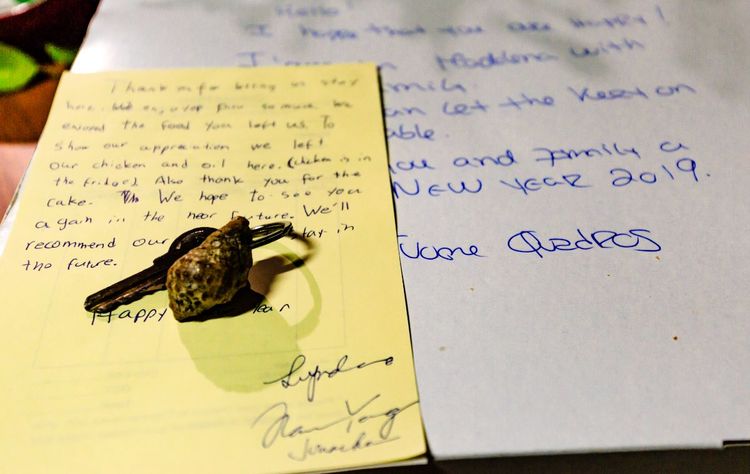 Hello!
I hope that you are Happy!
I'm in Maddena with
family.
can let the Key on
able.
you and Family a
NEW YEAR 2019.
Quadros
Thank you for letting us stay
here. We enjoyed your so much. We
enjoyed the food you left us. To
show our appreciation we left
our chicken and oil here. (chicken is in
the fridge) Also thank you for the
cake. We hope to see you
again in the near future. We'll
recommend our stay in
the future.
Happy Year